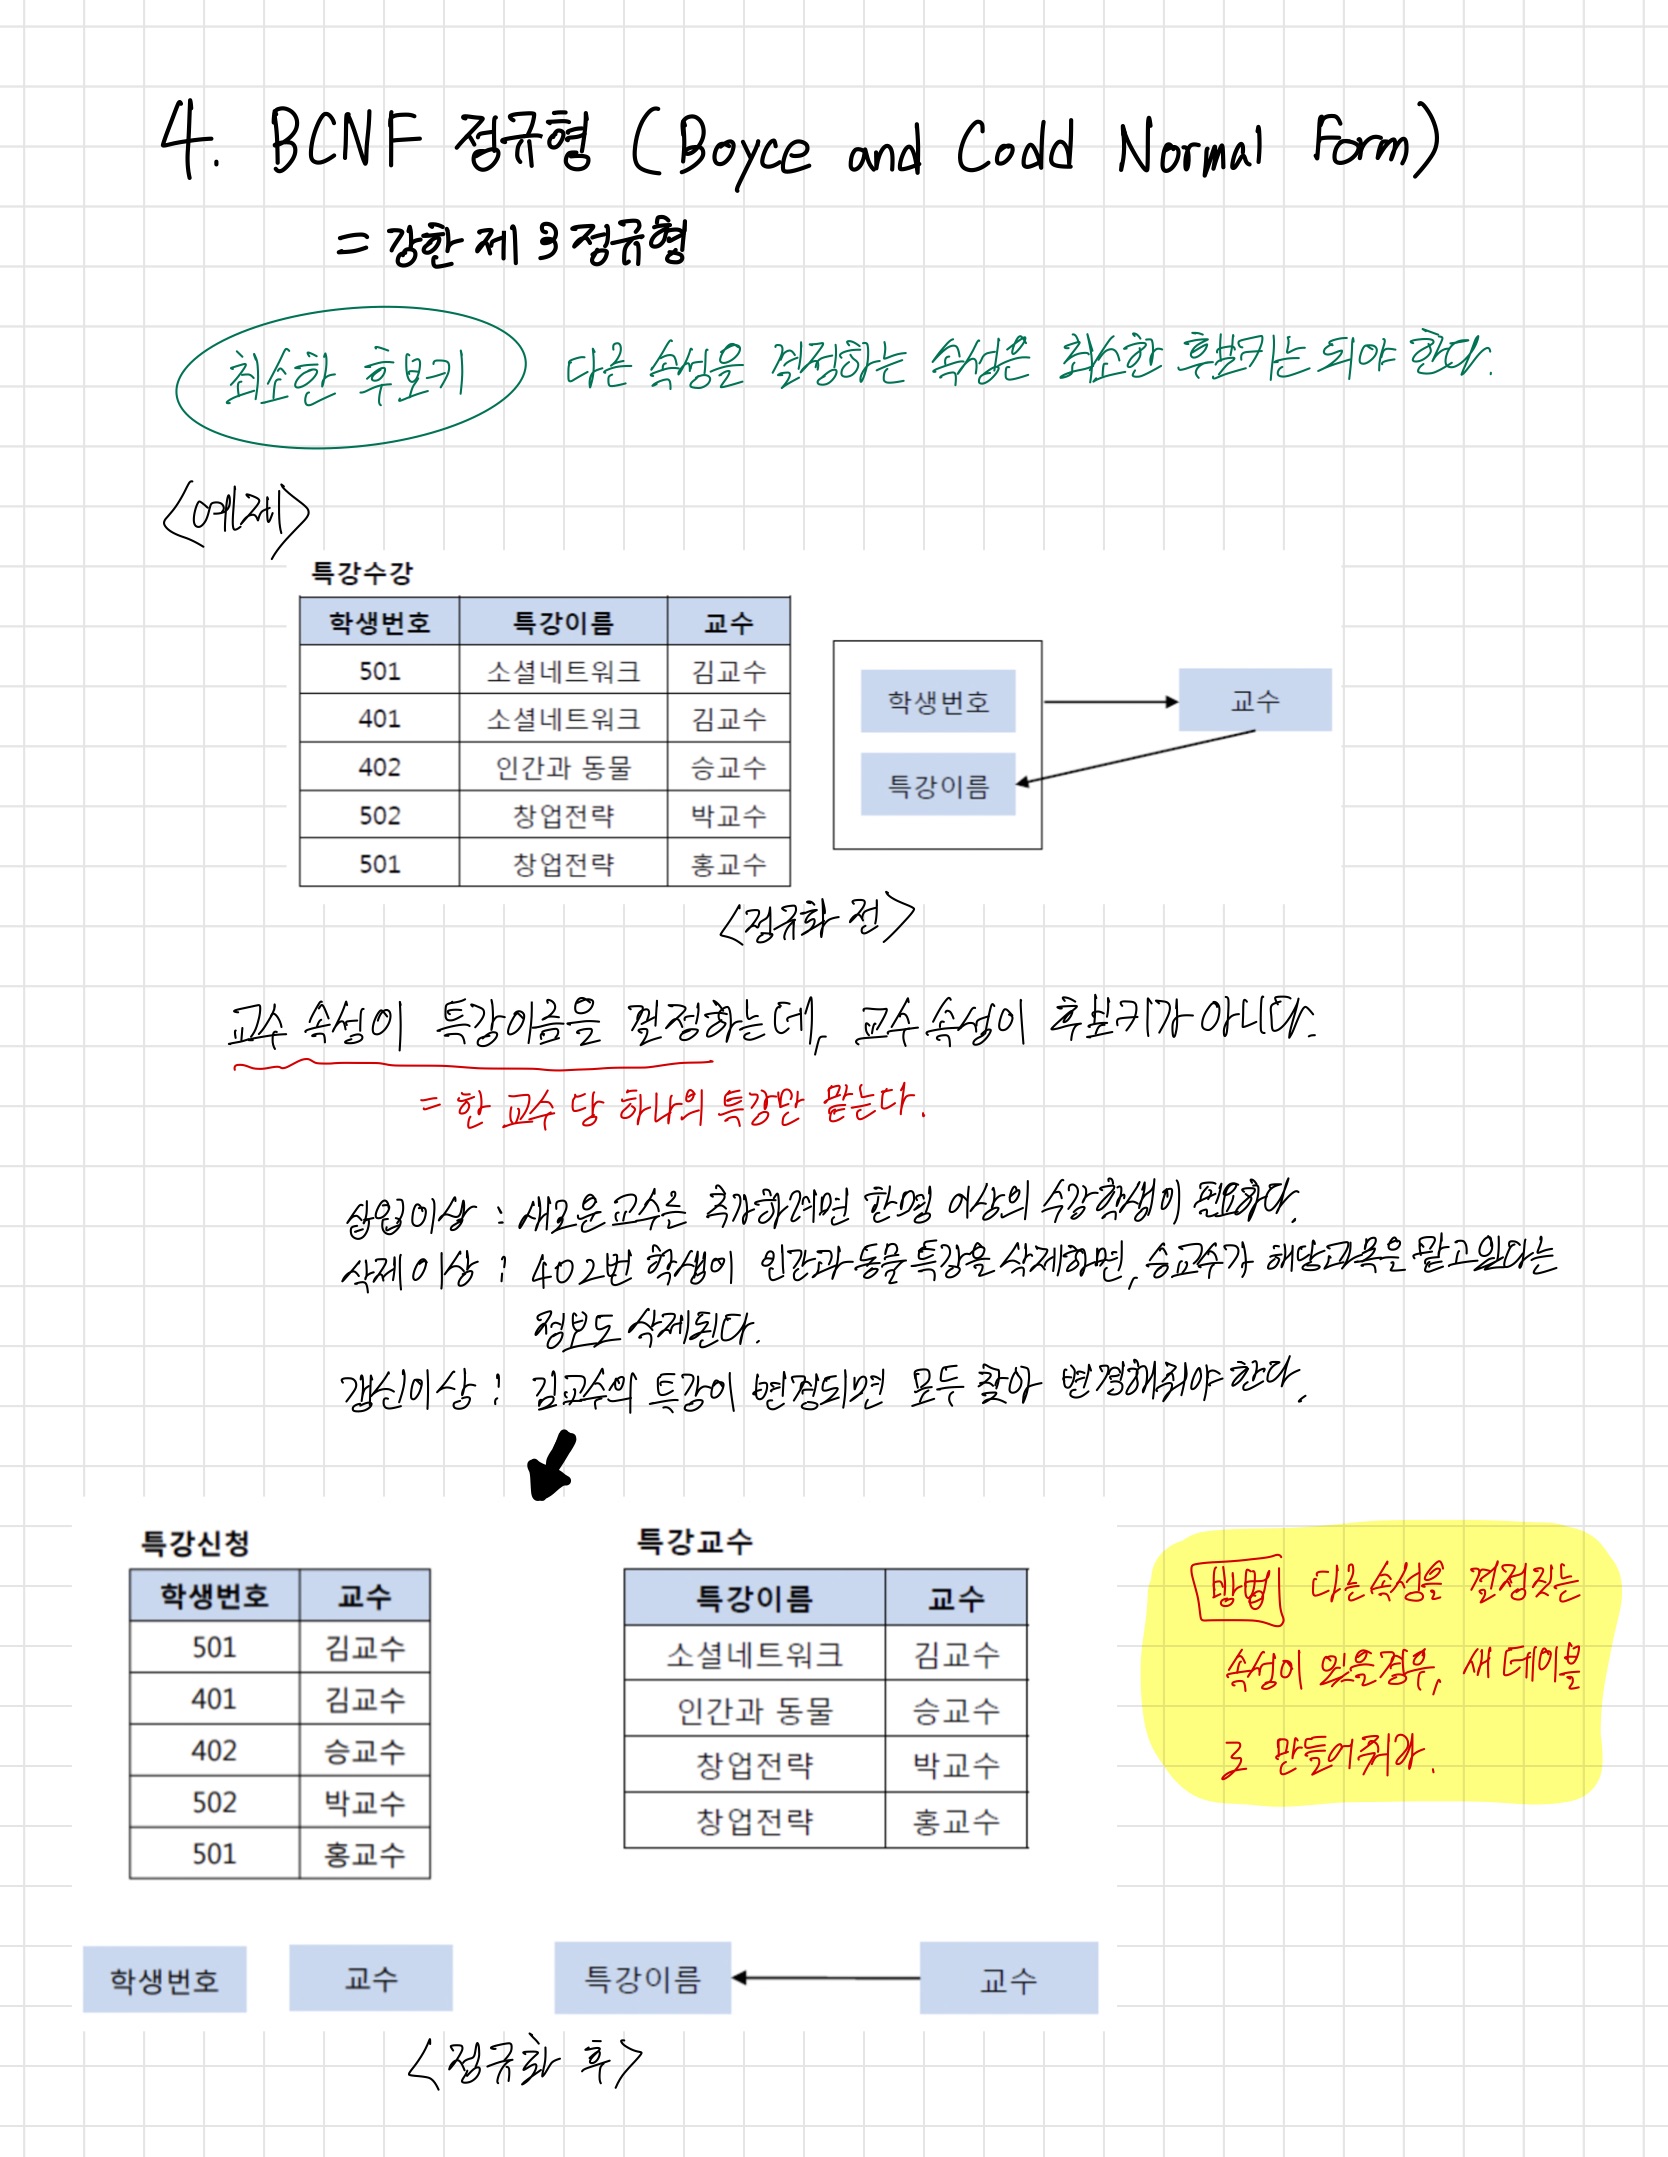 4. BCNF 정규형 (Boyce and Codd Normal Form)
= 강한 제 3 정규형
최소한 후보키 다른 속성을 결정하는 속성은 최소한 후보키는 되야 한다.
<예제>
특강수강
학생번호 특강이름 교수
501 소셜네트워크 김교수
401 소셜네트워크 김교수
402 인간과 동물 승교수
502 창업전략 박교수
501 창업전략 홍교수
학생번호 교수
특강이름
<정규화 전>
교수 속성이 특강이름을 결정하는데, 교수 속성이 후보키가 아니다.
= 한 교수 당 하나의 특강만 맡는다.
삽입이상 : 새로운 교수를 추가하려면 한명 이상의 수강학생이 필요하다.
삭제이상 : 402번 학생이 인간과 동물 특강을 삭제하면, 승교수가 해당과목을 맡고있다는
정보도 삭제된다.
갱신이상 : 김교수의 특강이 변경되면 모두 찾아 변경해줘야 한다.
특강신청
학생번호 교수
501 김교수
401 김교수
402 승교수
502 박교수
501 홍교수
특강교수
특강이름 교수
소셜네트워크 김교수
인간과 동물 승교수
창업전략 박교수
창업전략 홍교수
방법 다른속성을 결정짓는
속성이 있을경우, 새 테이블
로 만들어줘라.
학생번호 교수 특강이름 교수
<정규화 후>